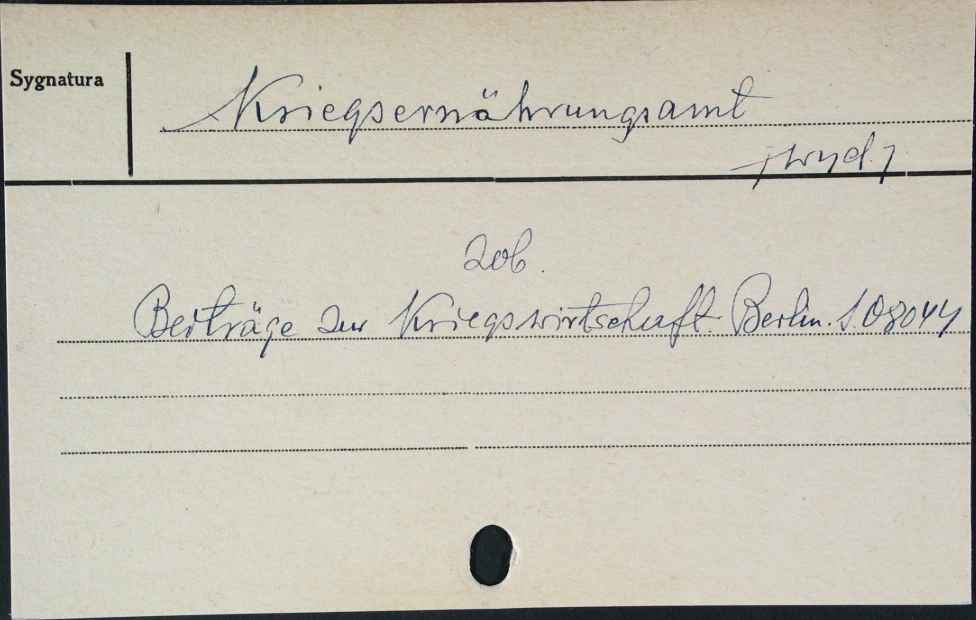 Sygnatura
Kriegsernährungsamt
/wyd./
zob.
Beiträge zur Kriegswirtschaft. Berlin. S.08044